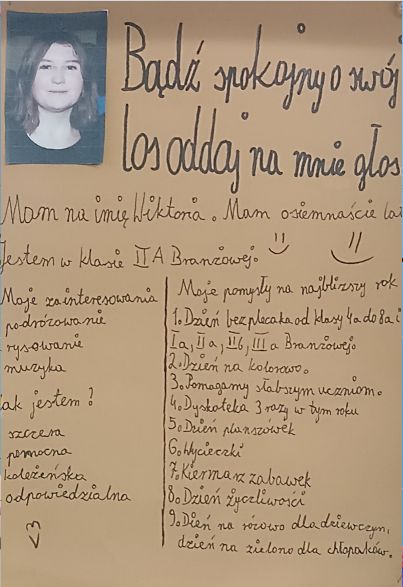 Bądź spokojny o swój
los oddaj na mnie głos
Mam na imię Wiktoria. Mam osiemnaście lat
Jestem w klasie II A Branżowej.
Moje zainteresowania
podróżowanie
rysowanie
muzyka
Jak jestem?
szczera
pomocna
koleżeńska
odpowiedzialna
<3
Moje pomysły na najblizszy rok
1. Dzień bez plecaka od klasy 4a do 8a i
I a, II a, II b, III a Branżowej.
2. Dzień na kolorowo.
3. Pomagamy słabszym uczniom.
4. Dyskoteka 3 razy w tym roku
5. Dzień planszówek
6. Wycieczki
7. Kiermasz zabawek
8. Dzień życzliwości
9. Dień na różowo dla dziewczyn,
dzień na zielono dla chłopaków.